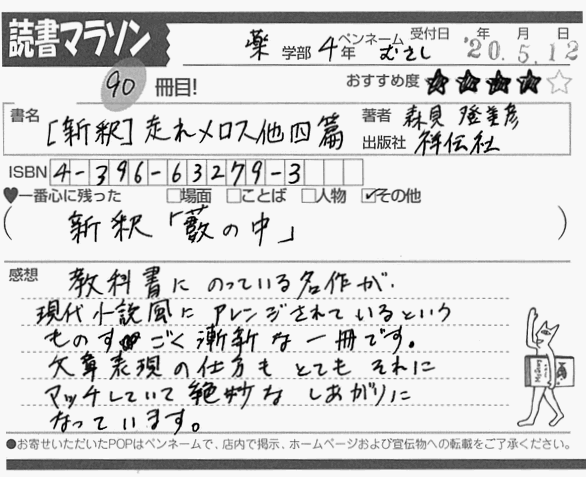 読書マラソン
薬 学部 4年 ペンネーム むさし 受付日 年 月 日 '20.5.12
90 冊目! おすすめ度 ★★★★☆
書名 [新釈] 走れメロス他四篇 著者 森見登美彦
出版社 祥伝社
ISBN 4-396-63279-3
♥一番心に残った □場面 □ことば □人物 ☑その他
(新釈「藪の中」)
感想 教科書にのっている名作が、
現代小説風にアレンジされているという
ものすごく漸新な一冊です。
文章表現の仕方もとてもそれに
マッチしていて絶妙なしあがりに
なっています。
●お寄せいただいたPOPはペンネームで、店内で掲示、ホームページおよび宣伝物への転載をご了承ください。